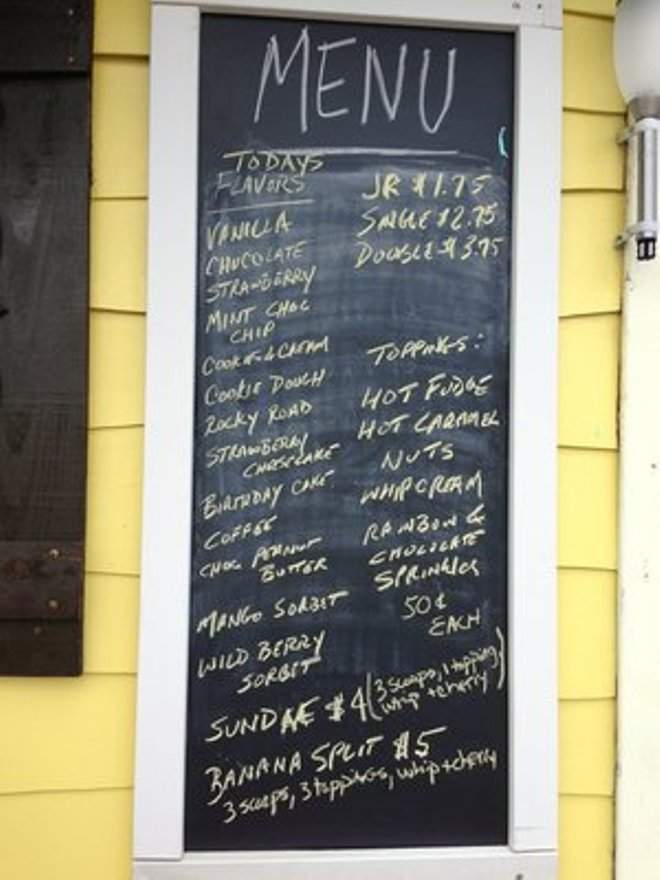 MENU
TODAYS
FLAVORS
VANILLA
CHOCOLATE
STRAWBERRY
MINT CHOC
CHIP
COOKIES & CREAM
COOKIE DOUGH
ROCKY ROAD
STRAWBERRY
CHEESECAKE
BIRTHDAY CAKE
COFFEE
CHOC PEANUT
BUTTER
MANGO SORBET
WILD BERRY
SORBET
JR $1.75
SINGLE $2.75
DOUBLE $3.75
TOPPINGS:
HOT FUDGE
HOT CARAMEL
NUTS
WHIPCREAM
RAINBOW &
CHOCOLATE
SPRINKLES
50¢
EACH
SUNDAE $4 (3 scoops, 1 topping,
whip + cherry)
BANANA SPLIT $5
3 scoops, 3 toppings, whip + cherry